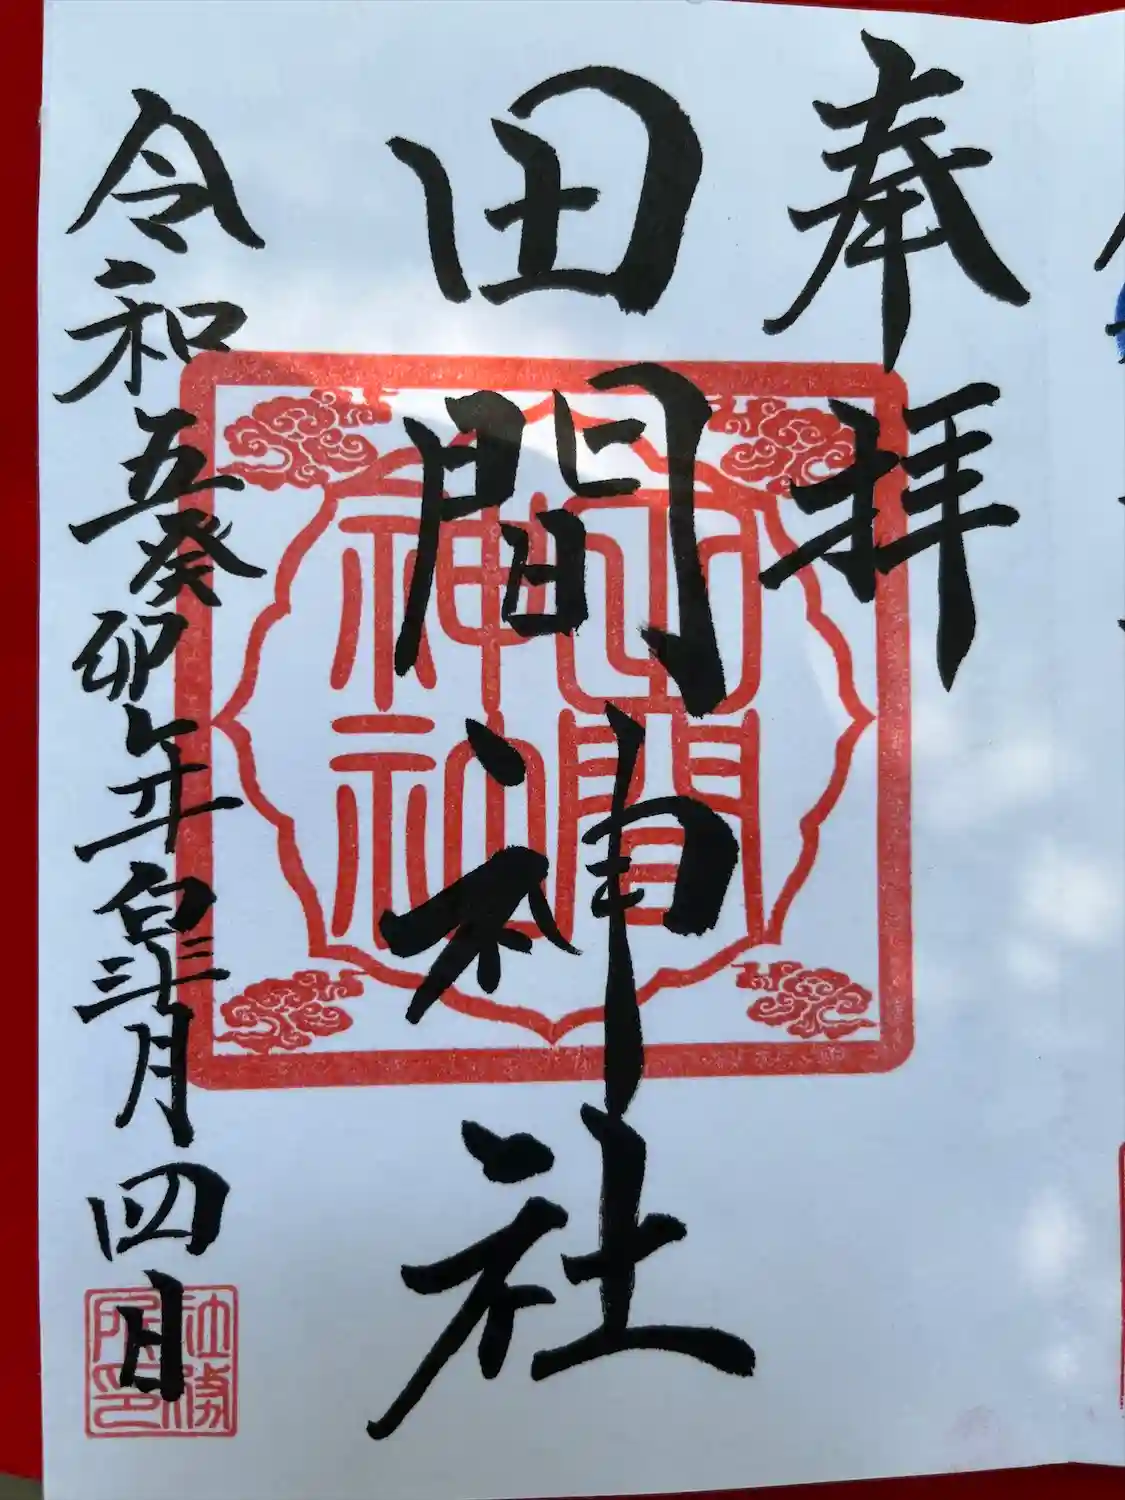 奉拝
田間神社
令和五癸卯年皐月四日
田間
神社
社務
所印